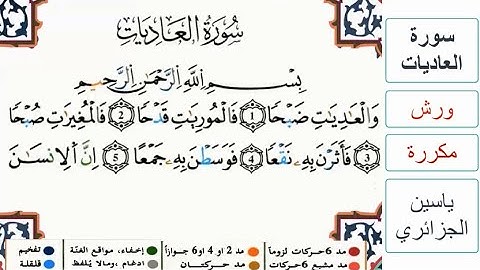 سُورَةُ العَادِيَاتِ
بِسْمِ اللَّهِ الرَّحْمَٰنِ الرَّحِيمِ
وَالْعَٰدِيَٰتِ ضَبْحًا 1 فَالْمُورِيَٰتِ قَدْحًا 2 فَالْمُغِيرَٰتِ صُبْحًا
3 فَأَثَرْنَ بِهِۦ نَقْعًا 4 فَوَسَطْنَ بِهِۦ جَمْعًا 5 إِنَّ اَلِانسَٰنَ
مد 6 حركات لزوماً مد 2 او 4 او 6 جوازاً إخفاء، مواقع الغنّة تفخيم
مد مشبع 6 حركات مد حركتان ادغام ، ومالا يُلفظ قلقلة
سورة
العاديات
ورش
مكررة
ياسين
الجزائري